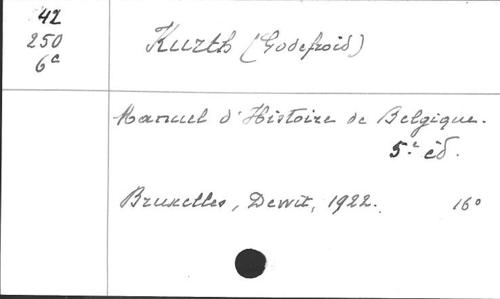 42
250
6c
Kurth (Godefroid)
Manuel d'Histoire de Belgique.
5.e éd.
Bruxelles, Dewit, 1922. 16°